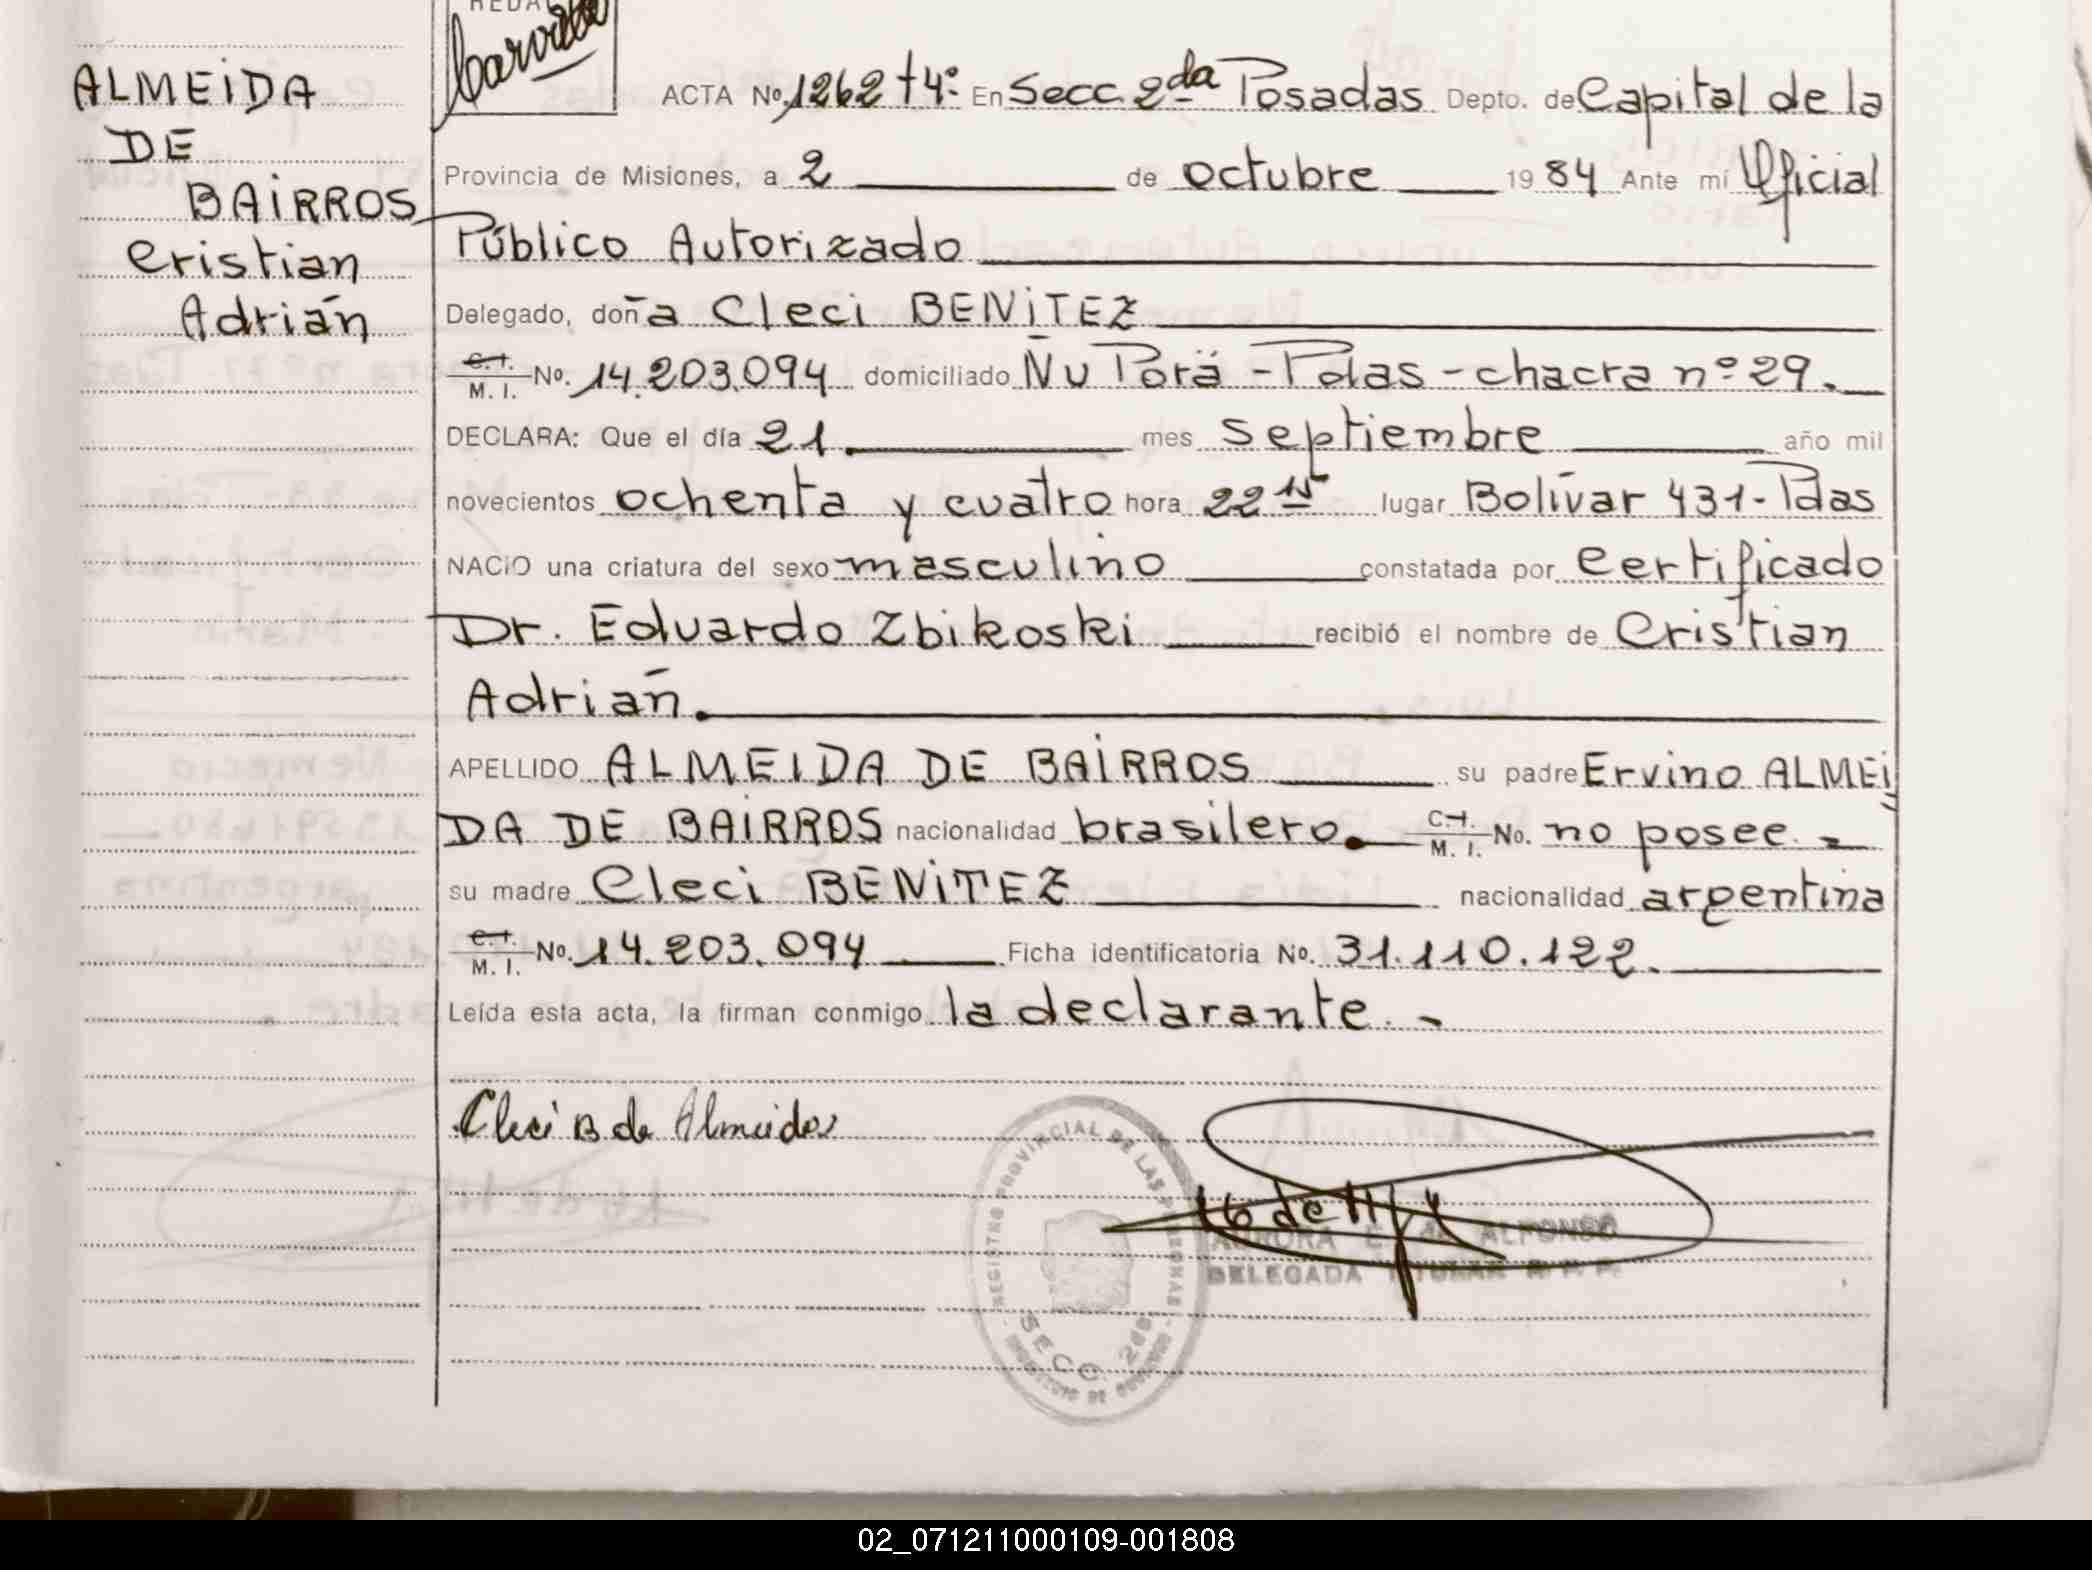 ALMEIDA
DE
BAIRROS
Cristian
Adrián
ACTA Nº 1262 t4º En Secc. 2da Posadas Depto. de Capital de la
Provincia de Misiones, a 2 de octubre 1984 Ante mí Oficial
Público Autorizado
Delegado, doña Cleci BENITEZ
C.I. M. I. No. 14.203.094 domiciliado Ñu Porä - Pdas - chacra nº 29.
DECLARA: Que el día 21 mes septiembre año mil
novecientos ochenta y cuatro hora 22 15 lugar Bolívar 431 - Pdas
NACIO una criatura del sexo masculino constatada por certificado
Dr. Eduardo Zbikoski recibió el nombre de Cristian
Adrián.
APELLIDO ALMEIDA DE BAIRROS su padre Ervino ALMEI
DA DE BAIRROS nacionalidad brasilero. C.I. M. I. No. no posee. -
su madre Cleci BENITEZ nacionalidad argentina
C.I. M. I. No. 14.203.094 Ficha identificatoria No. 31.110.122.
Leída esta acta, la firman conmigo la declarante. -
Cleci B de Almeida
REGISTRO PROVINCIAL DE LAS PERSONAS
SECC. 2da
AURORA ALFONSO
DELEGADA TITULAR R. P. P.
02_071211000109-001808